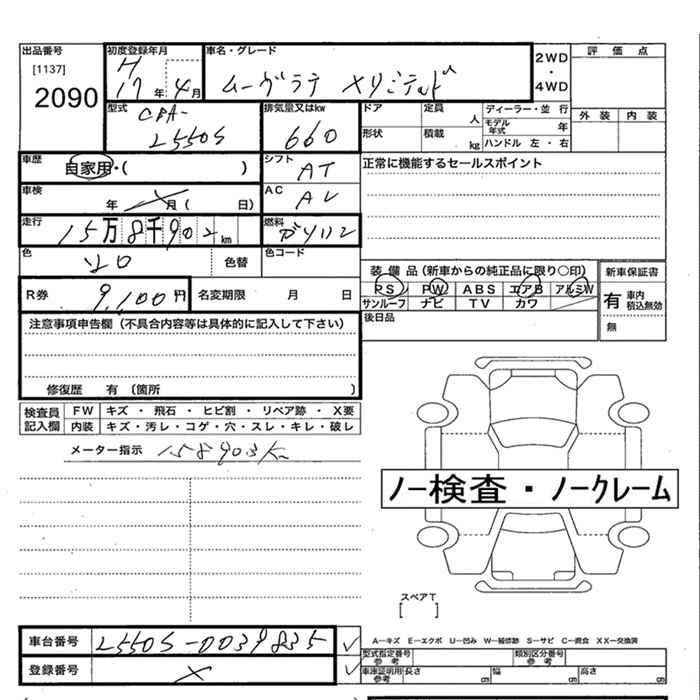 出品番号 初度登録年月 車名・グレード 2WD ・ 4WD 評価点
[1137]
2090
H 17年 4月 ムーヴラテ メリミテッド
型式 CBA-L550S 排気量又はkw 660 ドア 定員 人 ディーラー・並 行
モデル年式 年 外 装 内 装
形状 積載 kg ハンドル 左・右
車歴 自家用・( ) シフト AT 正常に機能するセールスポイント
車検 年 月 ( 日) AC
走行 15万8千902km 燃料 ガソリン
色 色替 色コード
装備品(新車からの純正品に限り○印) 新車保証書
R券 9,100円 名変期限 月 日 PS PW ABS エアB アルミW 有 車内積込無効
サンルーフ ナビ TV カワ 無
注意事項申告欄(不具合内容等は具体的に記入して下さい) 後日品
修復歴 有 〔箇所 〕
検査員記入欄 FW キズ・飛石・ヒビ割・リペア跡・X要
内装 キズ・汚レ・コゲ・穴・スレ・キレ・破レ
メーター指示 158903K
ノー検査・ノークレーム
スペアT
[ ]
車台番号 L550S-0039835
A—キズ E—エクボ U—凹み W—補修跡 S—サビ C—腐食 XX—交換済
型式指定番号 参考 類別区分番号 参考
登録番号 × 車庫証明用 参考 長さ cm 幅 cm 高さ cm